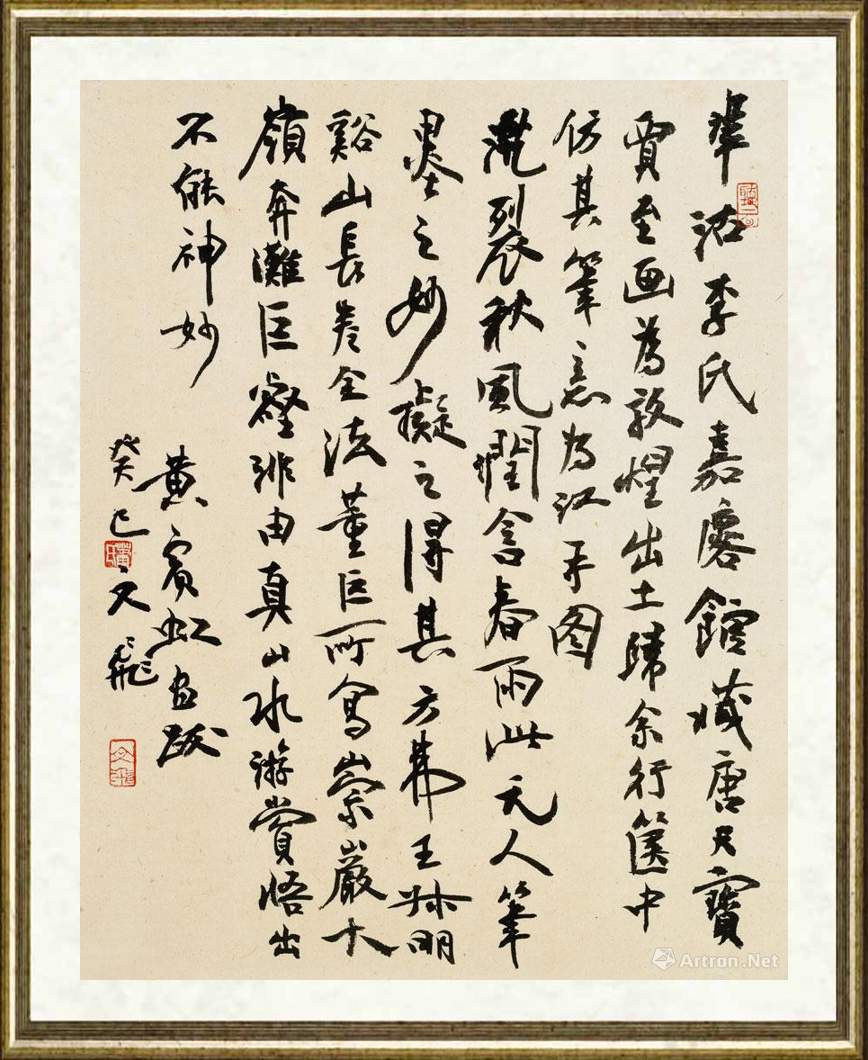 沽李氏嘉黁館藏唐天寶
賈至画為敦煌出土歸余行篋中
仿其筆意為江干图
乾裂秋風潤含春雨此元人筆
墨之妙擬之得其方弗王叔明
谿山長卷全法董巨所寫崇巖大
嶺奔灘巨壑非由真山水游賞悟出
不能神妙
黄賓虹画跋
癸巳文飛
文飛
Artron.Net